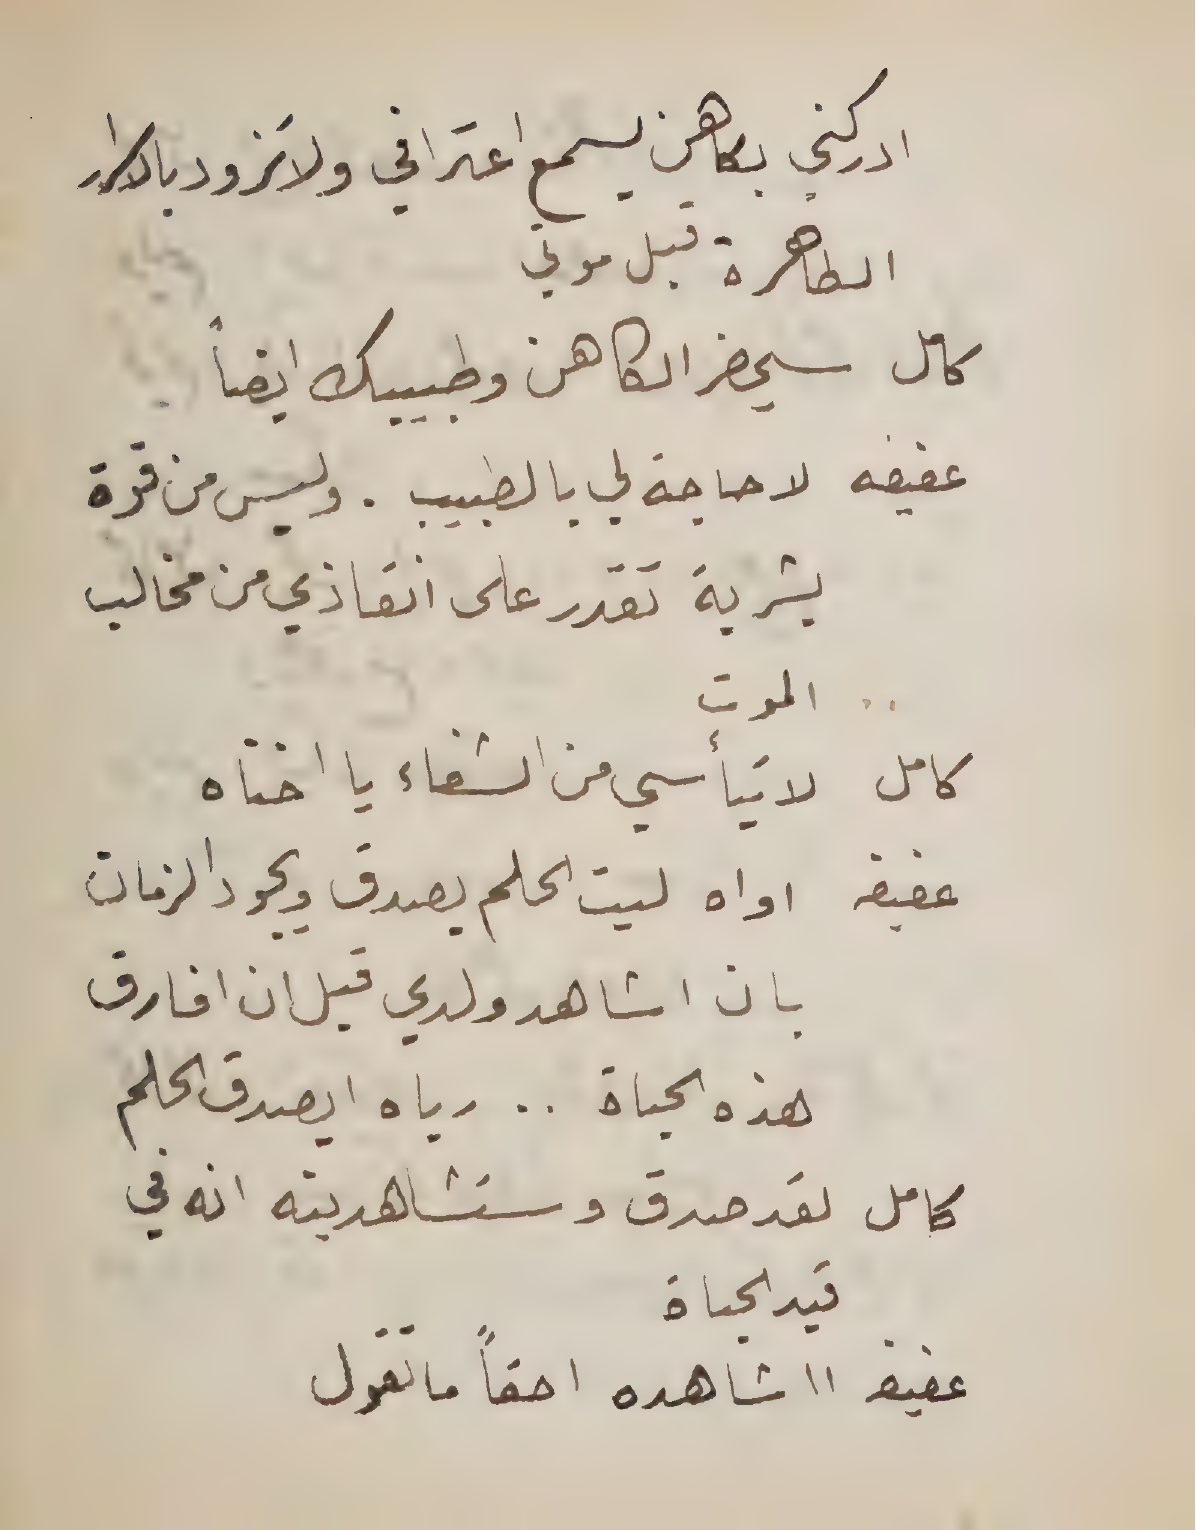 ادركني بكاهن يسمع اعترافي ولاتزود بالاسرار
الطاهرة قبل موتي
كامل سيحضر الكاهن وطبيبك ايضاً
عفيفه لا حاجة لي بالطبيب . وليس من قوة
بشرية تقدر على انقاذي من مخالب
.. الموت
كامل لا تيأسي من الشفاء يا اختاه
عفيفه اواه ليت الحلم يصدق ويجود الزمان
بان اشاهد ولدي قبل ان افارق
هذه الحياة .. رباه ايصدق الحلم
كامل لقد صدق وستشاهدينه انه في
قيد الحياة
عفيفه ااشاهده احقاً ما تقول